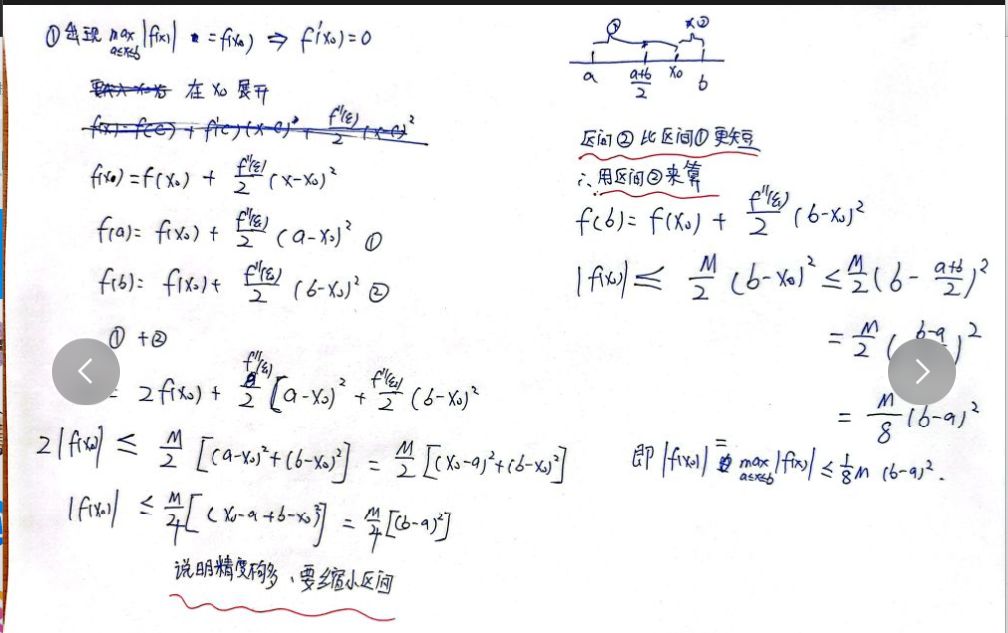 ① 出现 max |f(x)| = f(x₀) ⇒ f'(x₀)=0
a≤x≤b
在 x₀ 展开
f(x) = f(c) + f'(c)(x-c) + f''(ξ)/2 (x-c)²
f(x) = f(x₀) + f''(ξ)/2 (x-x₀)²
f(a) = f(x₀) + f''(ξ₁)/2 (a-x₀)² ①
f(b) = f(x₀) + f''(ξ₂)/2 (b-x₀)² ②
① + ②
= 2f(x₀) + f''(ξ₁)/2 (a-x₀)² + f''(ξ₂)/2 (b-x₀)²
2|f(x₀)| ≤ M/2 [(a-x₀)²+(b-x₀)²] = M/2 [(x₀-a)²+(b-x₀)²]
|f(x₀)| ≤ M/4 [(x₀-a+b-x₀)²] = M/4 [(b-a)²]
说明精度不够、要缩小区间
① ②
a (a+b)/2 x₀ b
区间② 比 区间① 更短
∴ 用区间②来算
f(b) = f(x₀) + f''(ξ)/2 (b-x₀)²
|f(x₀)| ≤ M/2 (b-x₀)² ≤ M/2 (b - (a+b)/2)²
= M/2 ( b-a )²
= M/8 (b-a)²
即 |f(x₀)| = max |f(x)| ≤ 1/8 M (b-a)².
a≤x≤b